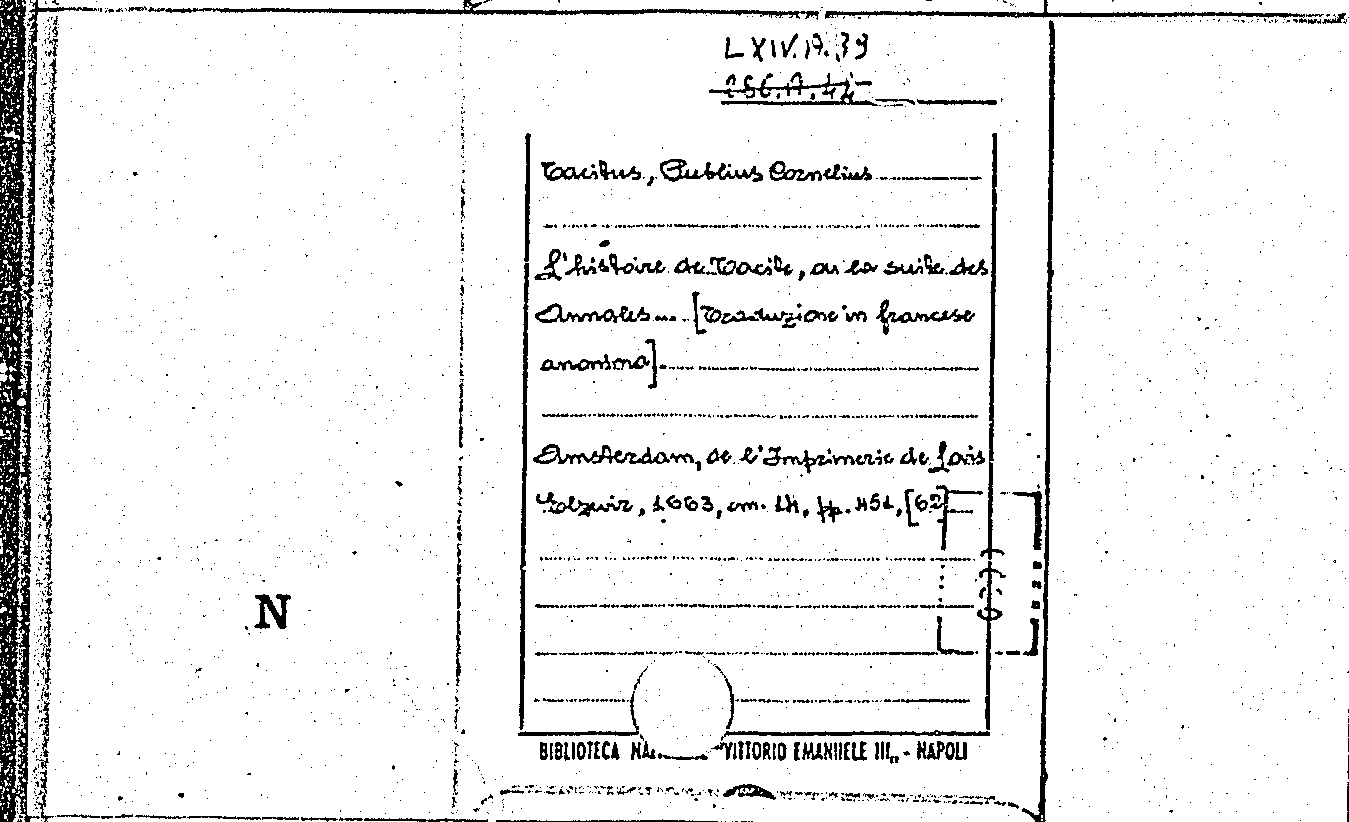 LXIV.A.39
256.A.44
Tacitus, Publius Cornelius
L'histoire de Tacite, ou la suite des
Annales... [Traduzione in francese
anonima].
Amsterdam, de l'Imprimerie de Louis
Elzevir, 1663, cm. 14, pp. 451, [62]
N
BIBLIOTECA "VITTORIO EMANUELE III„ - NAPOLI